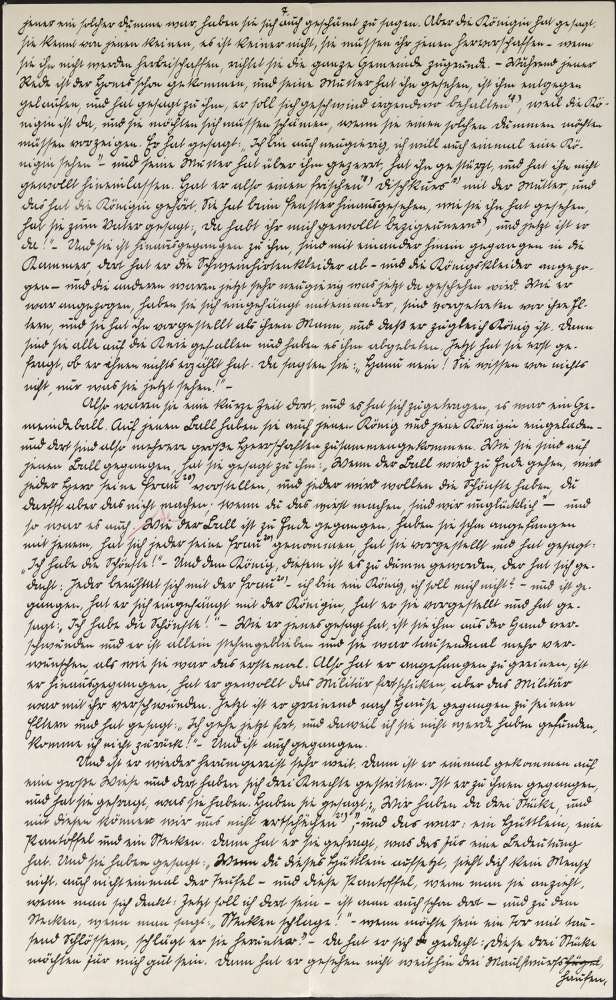 7
jener ein solcher Dumme war, haben sie sich auch geschämt zu sagen. Aber die Königin hat gesagt,
sie kennt von jenen keinen, es ist keiner nicht, sie müssen ihr jenen hervorschaffen – wenn
sie ihn nicht werden herbeischaffen, richtet sie die ganze Gemeinde zugrunde. – Während jener
Rede ist der schon gekommen, und seine Mutter hat ihn gesehen, ist ihm entgegen
gelaufen, und hat gesagt zu ihm, er soll sich geschwind irgendwo behalten, weil die Kö-
nigin ist da, und sie möchten sich müssen schämen, wenn sie einen solchen Dummen möchten
müssen vorzeigen. Er hat gesagt: „Ich bin auch neugierig, ich will auch einmal eine Kö-
nigin sehen" – und seine Mutter hat über ihn gezerrt, hat ihn gestürzt, und hat ihn nicht
gewollt hineinlassen. Hat er also einen frischen Diskurs mit der Mutter, und
das hat die Königin gehört. Sie hat beim Fenster hinausgesehen, wie sie ihn hat gesehen,
hat sie zum Vater gesagt: „Da habt ihr mich gewollt bezigeunern, und jetzt ist er
da!" – Und sie ist hinausgegangen zu ihm, sind miteinander hinein gegangen in die
Kammer, dort hat er die Schweinhirtenkleider ab – und die Königskleider angezo-
gen – und die anderen waren jetzt sehr neugierig was jetzt da geschehen wird. Wie er
war angezogen, haben sie sich eingehängt miteinander, sind vorgetreten vor ihre El-
tern, und sie hat ihn vorgestellt als ihren Mann, und daß er zugleich König ist. Dann
sind sie alle auf die Knie gefallen und haben es ihm abgebeten. Jetzt hat sie erst ge-
fragt, ob er ihnen nichts erzählt hat. Da sagten sie: „Hanu nein! Sie wissen von nichts
nicht, nur was sie jetzt sehen!" –
Also waren sie eine kurze Zeit dort, und es hat sich zugetragen, es war ein Ge-
meindeball. Auf jenen Ball haben sie auch jenen König und jene Königin eingeladen –
und dort sind also mehrere große Herrschaften zusammengekommen. Wie sie sind auf
jenen Ball gegangen, hat sie gesagt zu ihm: „Wenn der Ball wird zu Ende gehen, wird
jeder Herr seine Frau vorstellen, und jeder wird wollen die Schönste haben, du
darfst aber das nicht machen; wenn du das wirst machen, sind wir unglücklich" – und
so war es auch. Wie der Ball ist zu Ende gegangen, haben sie schon angefangen
mit jenem, hat sich jeder seine Frau genommen hat sie vorgestellt und hat gesagt:
„Ich habe die Schönste!" – Und dem König, diesem ist es zu dumm geworden, der hat sich ge-
dacht: Jeder berühmt sich mit der Frau – ich bin ein König, ich soll mich nicht? – und ist ge-
gangen, hat er sich eingehängt mit der Königin, hat er sie vorgestellt und hat ge-
sagt: „Ich habe die Schönste!" – Wie er jenes gesagt hat, ist sie ihm aus der Hand ver-
schwunden und er ist allein stehengeblieben und sie war tausendmal mehr ver-
wunschen als wie sie war das erstemal. Also hat er angefangen zu greinen, ist
er hinausgegangen, hat er gewollt das Militär fortschicken, aber das Militär
war mit ihr verschwunden. Jetzt ist er greinend nach Hause gegangen zu seinen
Eltern und hat gesagt: „Ich gehe jetzt fort, und derweil ich sie nicht werde haben gefunden,
komme ich nicht zurück!" – Und ist auch gegangen.
Und ist er wieder herumgereist sehr weit. Dann ist er einmal gekommen auf
eine große Wiese und dort haben sich drei Knechte gestritten. Ist er zu ihnen gegangen,
und hat sie gefragt, was sie haben. Haben sie gesagt: „Wir haben da drei Stücke, und
mit diesen können wir uns nicht", und das war: ein Hüttlein, eine
Pantoffel und ein Stecken. Dann hat er sie gefragt, was das für eine Bedeutung
hat. Und sie haben gesagt: „Wenn du dieses Hüttlein aufsetzt, sieht dich kein Mensch
nicht, auch nicht einmal der Teufel – und diese Pantoffel, wenn man sie anzieht,
wenn man sich denkt: Jetzt soll ich dort sein – ist man auch schon dort – und zu dem
Stecken, wenn man sagt: „Stecken schlage!" – wenn möchte sein ein Tor mit tau-
send Schlössern, schlägt er sie herunter" – da hat er sich gedacht: „Diese drei Stücke
möchten für mich gut sein. Dann hat er gesehen nicht weit hin drei Maulwurfs
haufen,